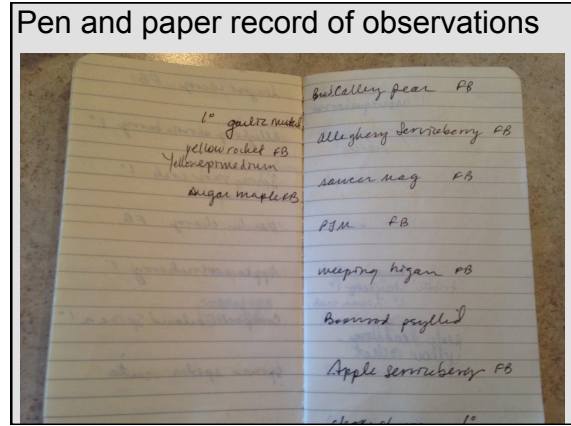 Pen and paper record of observations
1° garlic mustard
yellow rocket FB
Yellow epimedium
sugar maple FB
Callery pear FB
allegheny serviceberry FB
saucer mag FB
PJM FB
weeping higan FB
Boxwood psyllid
Apple serviceberry FB
1°